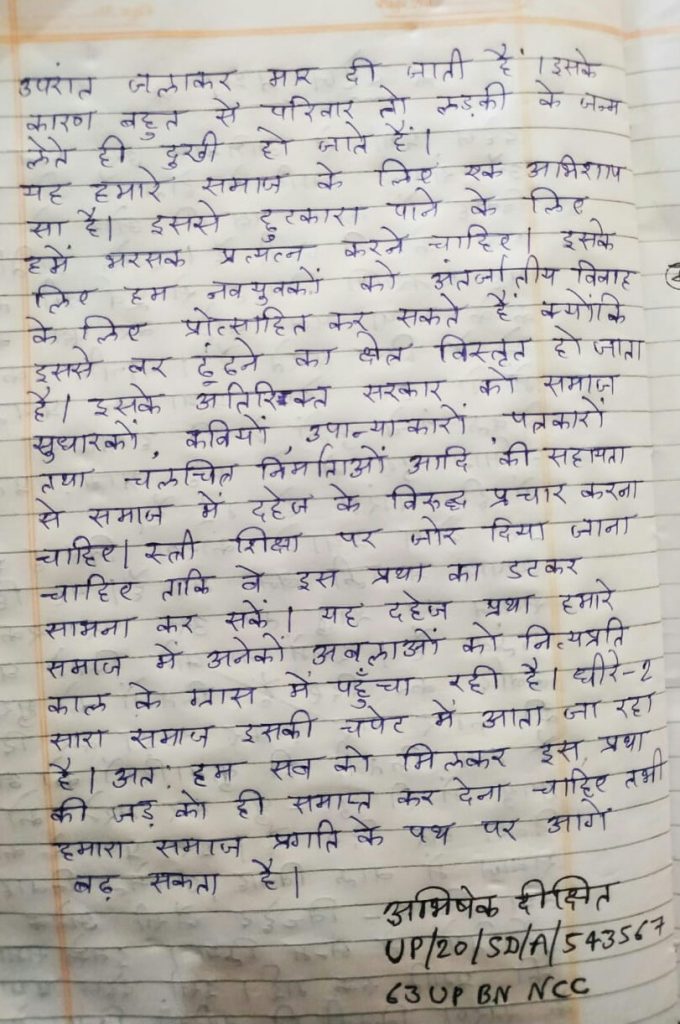 उपरांत जलाकर मार दी जाती हैं । इसके
कारण बहुत से परिवार तो लड़की के जन्म
लेते ही दुखी हो जाते हैं।
यह हमारे समाज के लिए एक अभिशाप
सा है। इससे छुटकारा पाने के लिए
हमें भरसक प्रत्यत्न करने चाहिए। इसके
लिए हम नवयुवकों को अंतर्जातीय विवाह
के लिए प्रोत्साहित कर सकते हैं क्योंकि
इससे वर ढूंढने का क्षेत्र विस्तृत हो जाता
है। इसके अतिरिक्त सरकार को समाज
सुधारकों, कवियों, उपान्याकारों, पत्रकारों
तथा चलचित्र निर्माताओं आदि की सहायता
से समाज में दहेज के विरुद्ध प्रचार करना
चाहिए। स्त्री शिक्षा पर जोर दिया जाना
चाहिए ताकि वे इस प्रथा का डटकर
सामना कर सकें। यह दहेज प्रथा हमारे
समाज में अनेकों अबलाओं को नित्यप्रति
काल के ग्रास में पहुँचा रही है। धीरे-2
सारा समाज इसकी चपेट में आता जा रहा
है। अतः हम सब को मिलकर इस प्रथा
की जड़ को ही समाप्त कर देना चाहिए तभी
हमारा समाज प्रगति के पथ पर आगे
बढ़ सकता है।
अभिषेक दीक्षित
UP/20/SD/A/543567
63 UP BN NCC